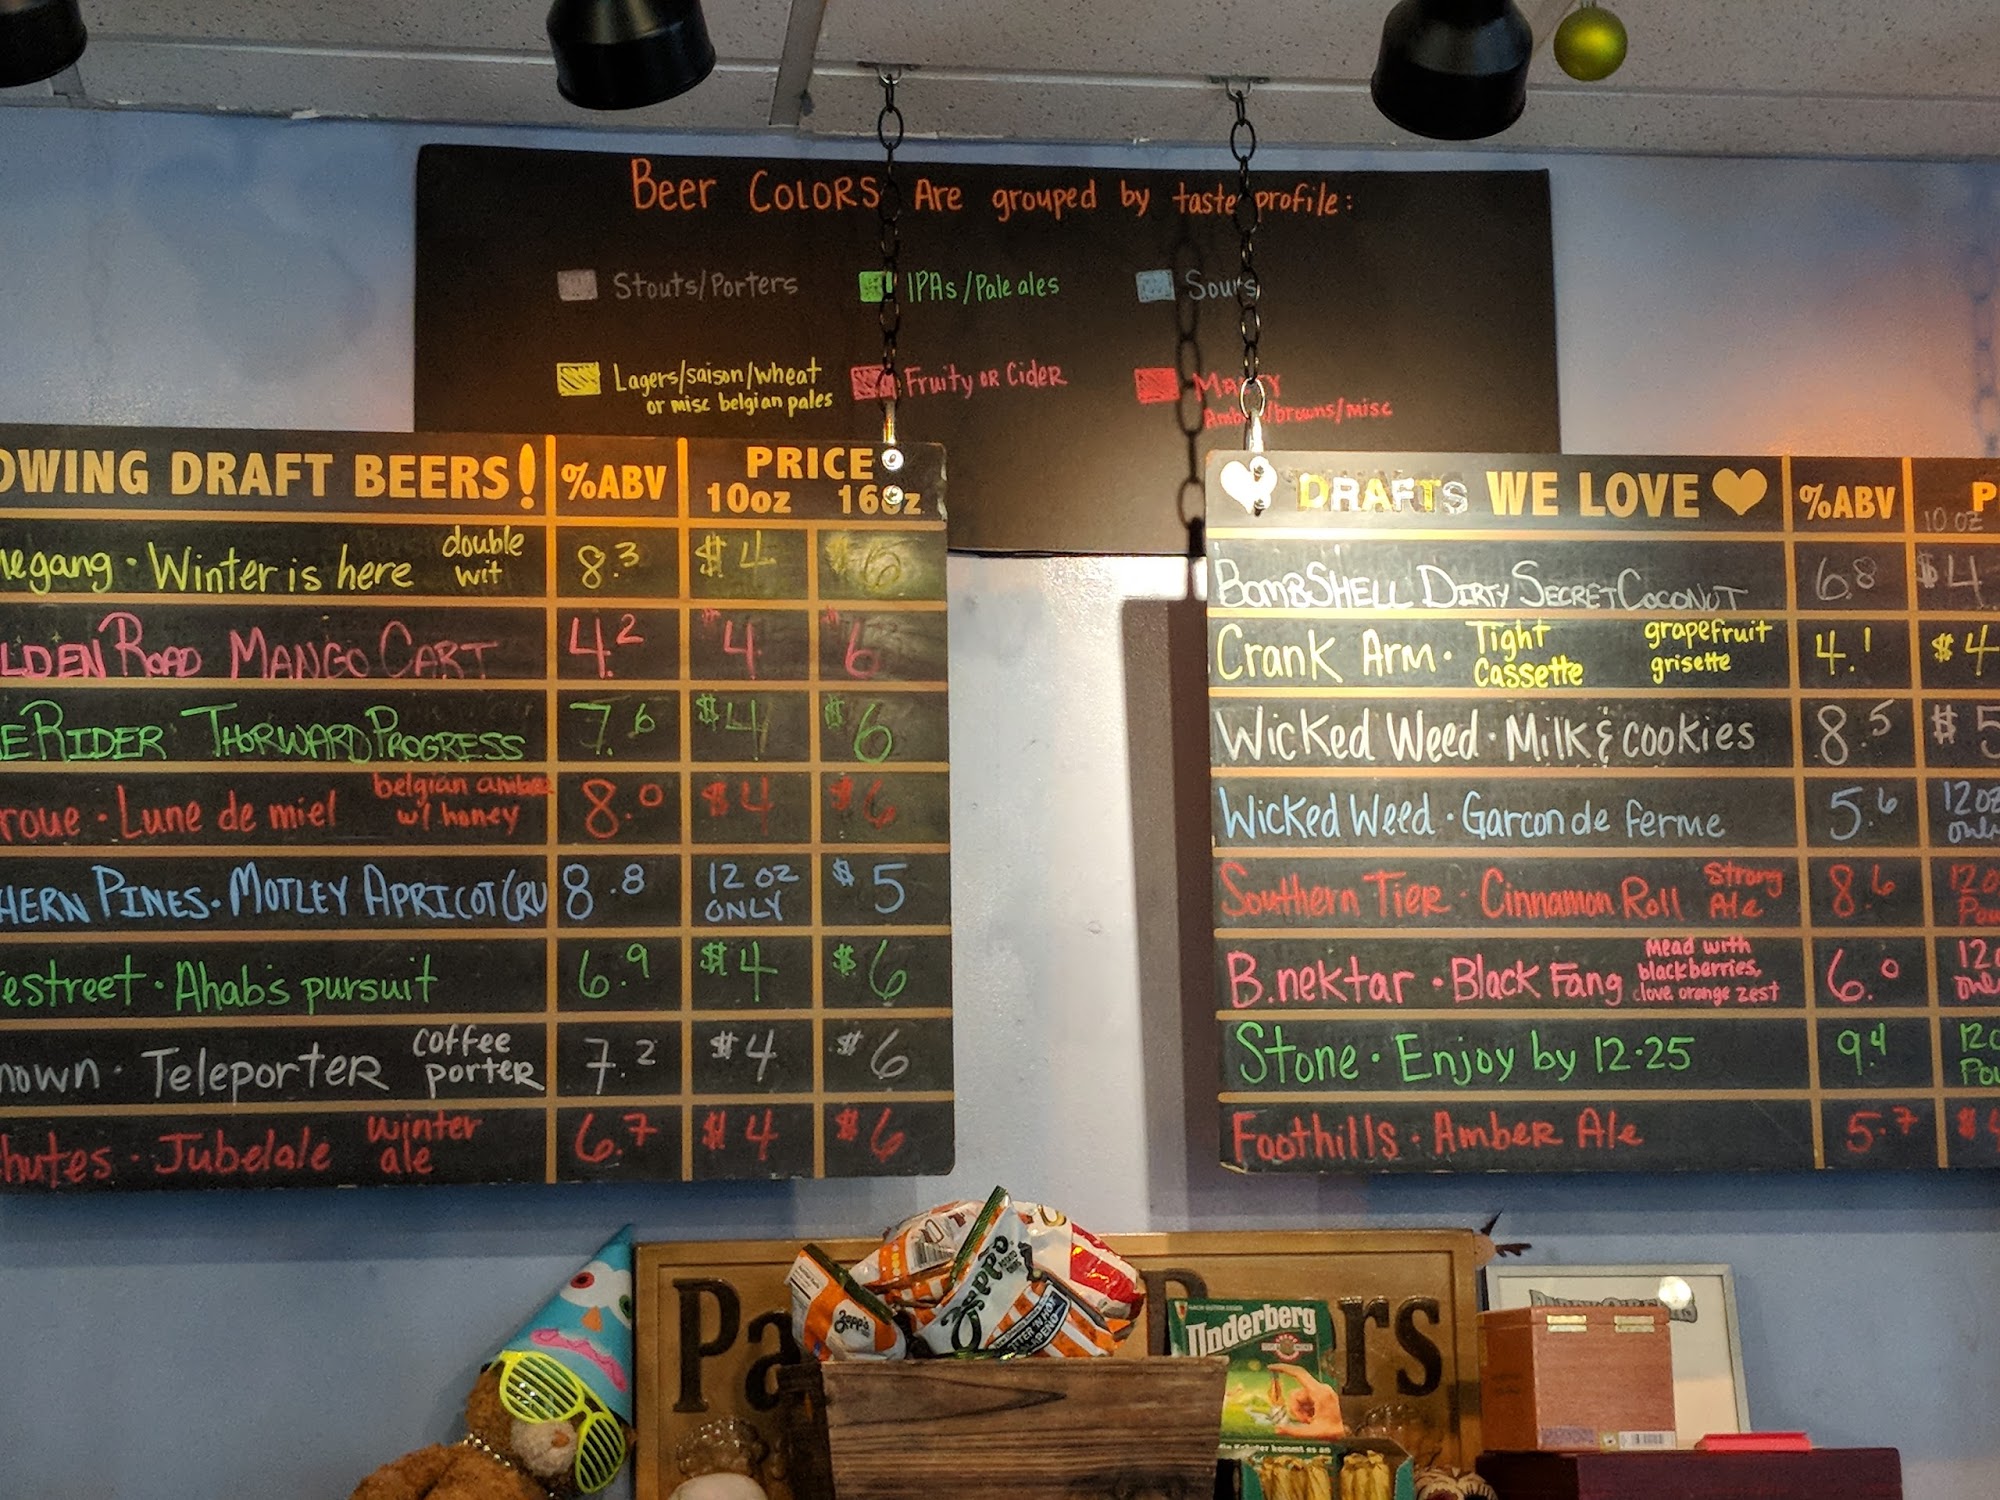 Beer COLORS Are grouped by taste profile:
Stouts/Porters
IPAs/Pale ales
Sours
Lagers/saison/wheat
or misc belgian pales
Fruity or Cider
Malty
Amber/browns/misc
OWING DRAFT BEERS! %ABV PRICE
10oz 16oz
megang · Winter is here double wit 8.3 $4 $6
LDEN ROAD MANGO CART 4.2 $4 $6
E RIDER THORWARD PROGRESS 7.6 $4 $6
roue · Lune de miel belgian amber w/ honey 8.0 $4 $6
HERN PINES · MOTLEY APRICOT CRU 8.8 12 OZ ONLY $5
estreet · Ahab's pursuit 6.9 $4 $6
nown · Teleporter coffee porter 7.2 $4 $6
hutes · Jubelale winter ale 6.7 $4 $6
DRAFTS WE LOVE %ABV P
10 OZ
BOMBSHELL DIRTY SECRET COCONUT 6.8 $4
Crank Arm · Tight Cassette grapefruit grisette 4.1 $4
Wicked Weed · Milk & cookies 8.5 $5
Wicked Weed · Garcon de ferme 5.6 12oz only
Southern Tier · Cinnamon Roll Strong Ale 8.6 12o Pou
B.nektar · Black Fang Mead with blackberries, clove, orange zest 6.0 12o only
Stone · Enjoy by 12·25 9.4 12o Pou
Foothills · Amber Ale 5.7 $4
Zapp's
Zapp's
POTATO CHIPS
Pa
rs
Underberg